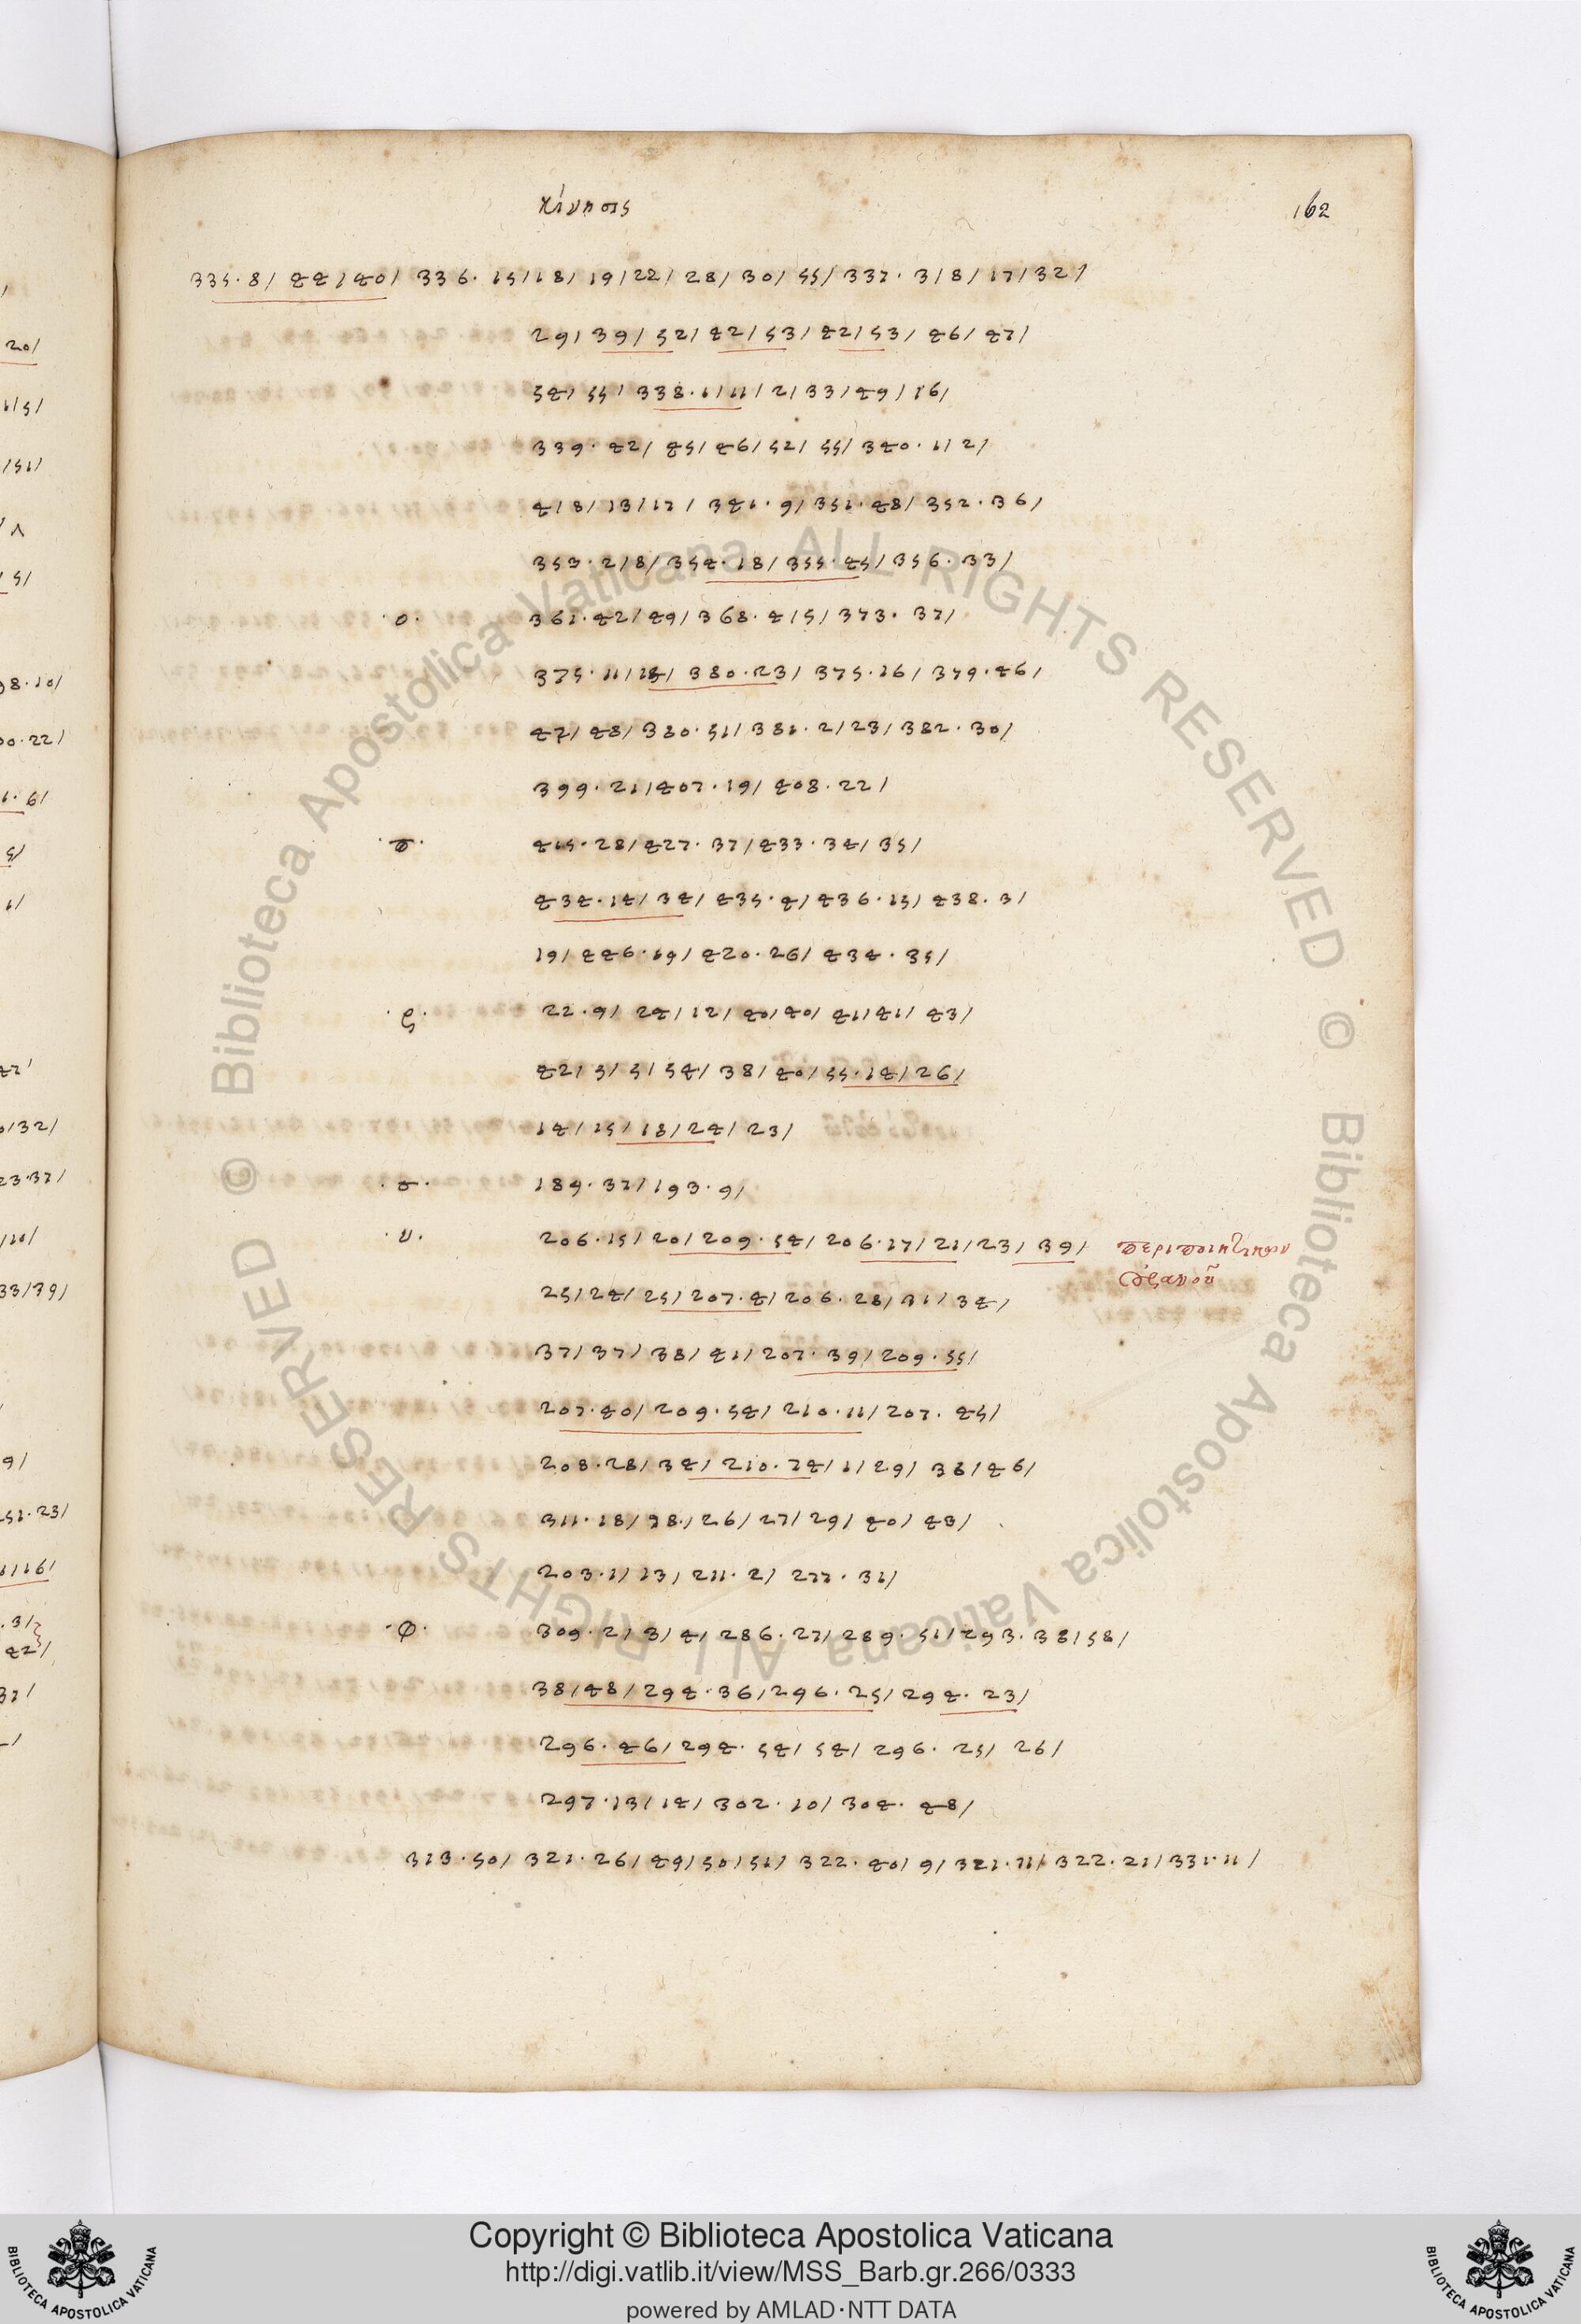 κίνησις
162
335·8/ 44/40/ 336·15/18/19/22/28/30/55/337·3/8/17/32/
29/39/52/42/53/42/53/46/47/
54/55/338·1/11/2/33/49/16/
339·42/45/46/52/55/340·1/2/
4/8/13/17/341·9/351·48/352·36/
353·2/8/354·18/355·45/356·33/
·ο· 361·42/49/368·4/5/373·37/
375·11/15/380·23/375·16/379·46/
47/48/380·51/381·2/23/382·30/
399·21/407·19/408·22/
·π· 415·28/427·37/433·34/35/
434·14/34/435·4/436·15/438·3/
19/446·19/420·26/434·35/
·ρ· 22·9/24/12/40/40/41/41/43/
42/5/5/54/38/40/55·14/26/
14/15/18/24/23/
·σ· 189·37/193·9/
·υ· 206·15/20/209·54/206·17/21/23/39/ περιποιητικὸν
οὐρανοῦ
25/24/25/207·4/206·28/31/34/
37/37/38/41/207·39/209·55/
207·40/209·54/210·11/207·45/
208·28/34/210·24/1/29/36/46/
311·18/78·/26/27/29/40/43/
203·1/13/211·2/277·31/
·φ· 309·2/3/4/286·27/289·51/293·38/58/
38/48/294·36/296·25/294·23/
296·46/294·54/54/296·25/26/
297·13/14/302·10/304·48/
313·50/321·26/49/50/51/322·40/9/321·11/322·21/331·11/
Copyright © Biblioteca Apostolica Vaticana
http://digi.vatlib.it/view/MSS_Barb.gr.266/0333
powered by AMLAD·NTT DATA
BIBLIOTECA APOSTOLICA VATICANA
BIBLIOTECA APOSTOLICA VATICANA
© Biblioteca Apostolica Vaticana ALL RIGHTS RESERVED
© Biblioteca Apostolica Vaticana ALL RIGHTS RESERVED